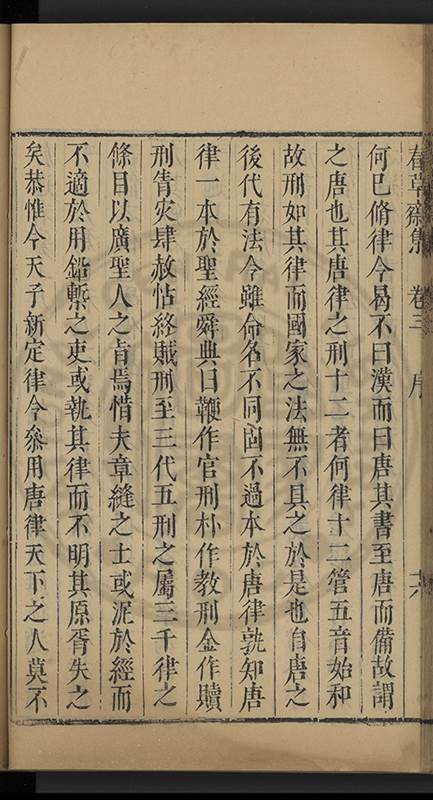 春草齋集 卷三 序
何巳脩律令曷不曰漢而曰唐其書至唐而備故謂
之唐也其唐律之刑十二者何律十二管五音始和
故刑如其律而國家之法無不具之於是也自唐之
後代有法令雖命名不同固不過本於唐律孰知唐
律一本於聖經舜典曰鞭作官刑朴作教刑金作贖
刑眚灾肆赦怙終賊刑至三代五刑之屬三千律之
條目以廣聖人之旨焉惜夫章縫之士或泥於經而
不適於用鉛槧之吏或執其律而不明其原胥失之
矣恭惟今天子新定律令叅用唐律天下之人莫不